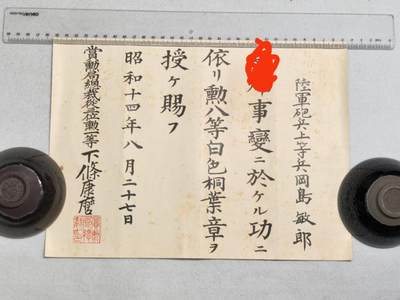 陸軍砲兵上等兵岡島敏郎
事變ニ於ケル功ニ
依リ勲八等白色桐葉章ヲ
授ケ賜フ
昭和十四年八月二十七日
賞勲局總裁從三位勲一等下條康麿